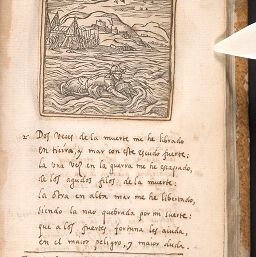 2. Dos veces de la muerte me he librado
en tierra, y mar con este escudo fuerte;
la una vez en la guerra me he escapado,
de los agudos filos de la muerte:
la otra en alta mar me he libertado,
siendo la nao quebrada por mi suerte:
que a los fuertes fortuna les aiuda,
en el maior peligro, y maior duda.